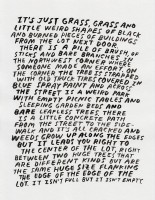 IT'S JUST GRASS, GRASS AND
LITTLE WEIRD SHAPES OF BLACK
AND BURNED PIECES OF BUILDINGS
FROM THE LOT NEXT DOOR.
THERE IS A PILE OF BRUSH, OF
STICKS AND BARE BRANCHES IN
THE NORTHWEST CORNER WHERE
SOMEONE MADE AN EFFORT ON
THE CORNER THE TREE IS STRAPPED
WITH OLD TRUCK TIRES COVERED IN
BLUE SPRAY PAINT AND ACROSS
THE STREET IS A WEIRD PARK
WITH EMPTY PICNIC TABLES AND
SLEEPING GARDEN BEDS AND
BARE LEAFLESS TREES. THERE
IS A LITTLE CONCRETE PATH
FROM THE STREET TO THE SIDE-
WALK AND IT'S ALL CRACKED AND
WEEDS GROW UP ALONG THE EDGES
BUT IT LEADS YOU RIGHT TO
THE CENTER OF THE LOT, RIGHT
BETWEEN TWO HUGE TREES THAT
ARE DIFFERENT KINDS BUT ARE
THE SAME HUGE SIZE FRAMING
THE EDGE OF THE EDGE OF THE
LOT. IT ISN'T FULL BUT IT ISN'T EMPTY.